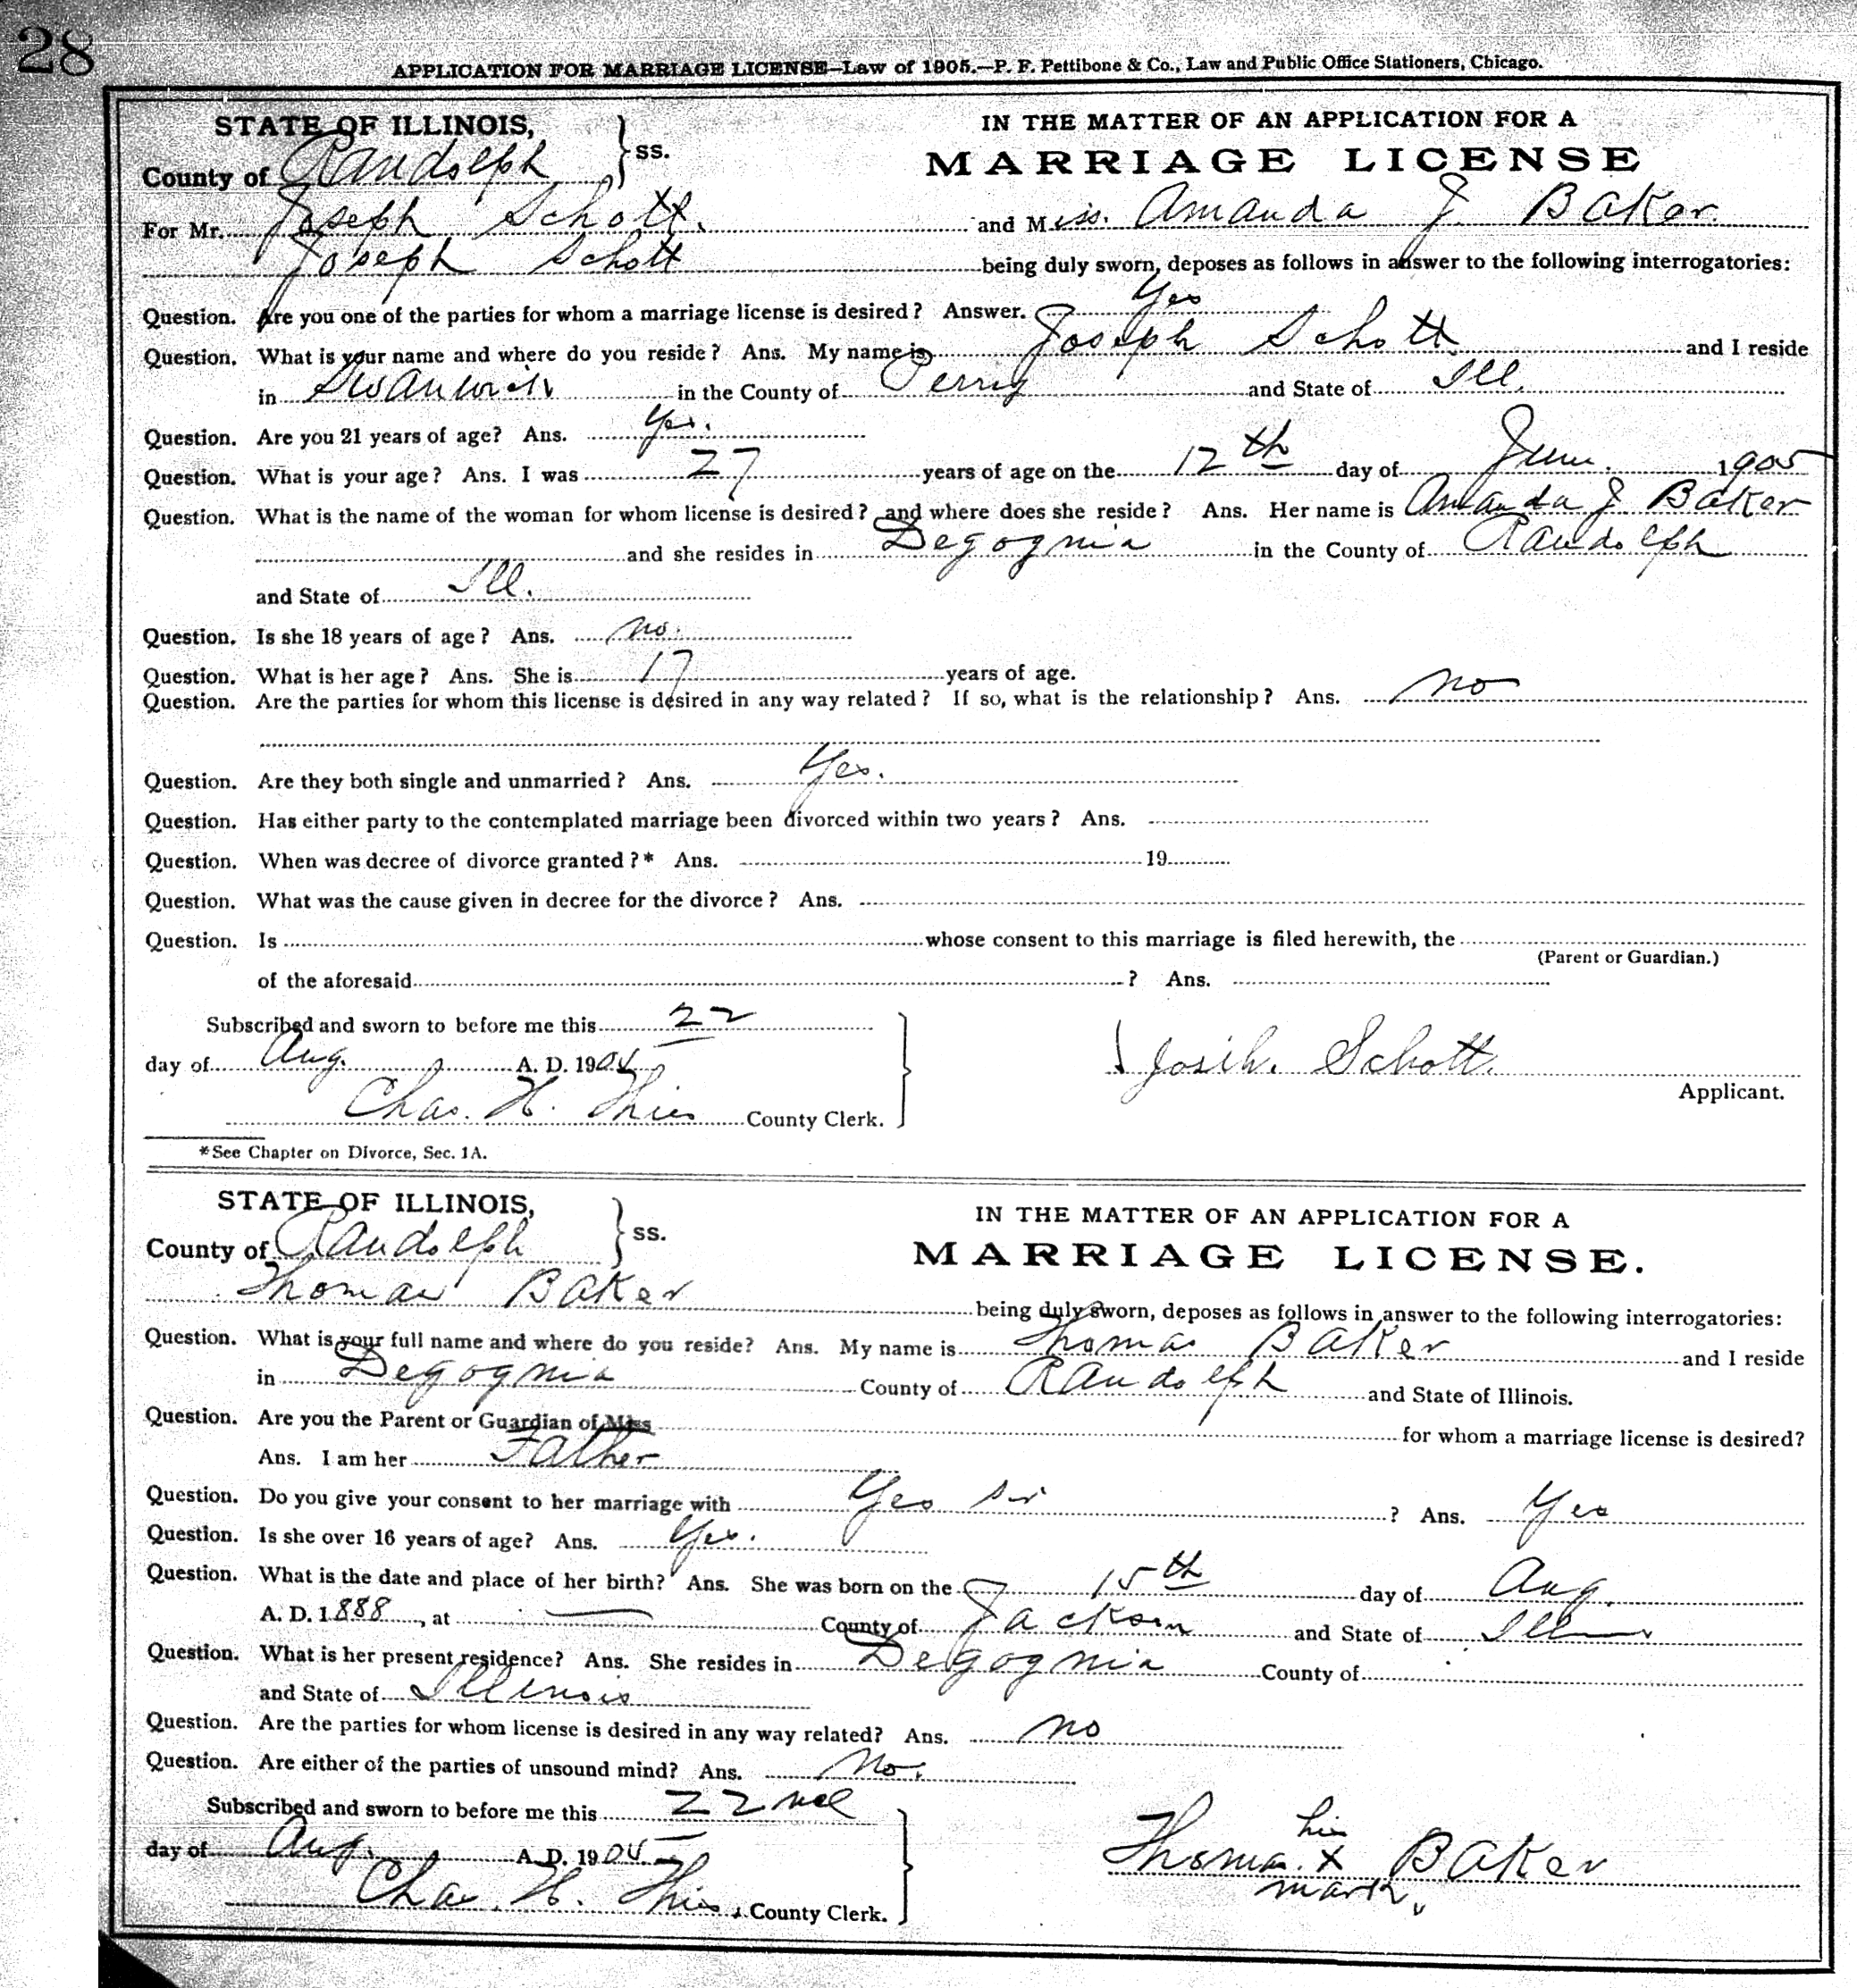 28
APPLICATION FOR MARRIAGE LICENSE—Law of 1905.—P. F. Pettibone & Co., Law and Public Office Stationers, Chicago.
STATE OF ILLINOIS,
County of Randolph } ss.
IN THE MATTER OF AN APPLICATION FOR A
MARRIAGE LICENSE
For Mr. Joseph Schott. and Miss. Amanda J. Baker.
Joseph Schott being duly sworn, deposes as follows in answer to the following interrogatories:
Question. Are you one of the parties for whom a marriage license is desired? Answer. Yes
Question. What is your name and where do you reside? Ans. My name is Joseph Schott and I reside
in Swanwick in the County of Perry and State of Ill.
Question. Are you 21 years of age? Ans. Yes.
Question. What is your age? Ans. I was 27 years of age on the 12th day of June. 1905
Question. What is the name of the woman for whom license is desired? and where does she reside? Ans. Her name is Amanda J Baker
and she resides in Degognia in the County of Randolph
and State of Ill.
Question. Is she 18 years of age? Ans. no.
Question. What is her age? Ans. She is 17 years of age.
Question. Are the parties for whom this license is desired in any way related? If so, what is the relationship? Ans. no
Question. Are they both single and unmarried? Ans. Yes.
Question. Has either party to the contemplated marriage been divorced within two years? Ans.
Question. When was decree of divorce granted?* Ans. 19
Question. What was the cause given in decree for the divorce? Ans.
Question. Is whose consent to this marriage is filed herewith, the
(Parent or Guardian.)
of the aforesaid ? Ans.
Subscribed and sworn to before me this 22
day of Aug. A. D. 1905
Chas. H. Thies County Clerk.
Schott.
Applicant.
*See Chapter on Divorce, Sec. 1A.
STATE OF ILLINOIS,
County of Randolph } ss.
IN THE MATTER OF AN APPLICATION FOR A
MARRIAGE LICENSE.
Thomas Baker being duly sworn, deposes as follows in answer to the following interrogatories:
Question. What is your full name and where do you reside? Ans. My name is Thomas Baker and I reside
in Degognia County of Randolph and State of Illinois.
Question. Are you the Parent or Guardian of Miss for whom a marriage license is desired?
Ans. I am her Father
Question. Do you give your consent to her marriage with Yes sir ? Ans. Yes
Question. Is she over 16 years of age? Ans. Yes.
Question. What is the date and place of her birth? Ans. She was born on the 15th day of Aug.
A. D. 1888, at — County of Jackson and State of Ills
Question. What is her present residence? Ans. She resides in Degognia County of
and State of Illinois
Question. Are the parties for whom license is desired in any way related? Ans. no
Question. Are either of the parties of unsound mind? Ans. No.
Subscribed and sworn to before me this 22nd
day of Aug. A. D. 1905
Chas. H. Thies, County Clerk.
his
Thomas X Baker
mark